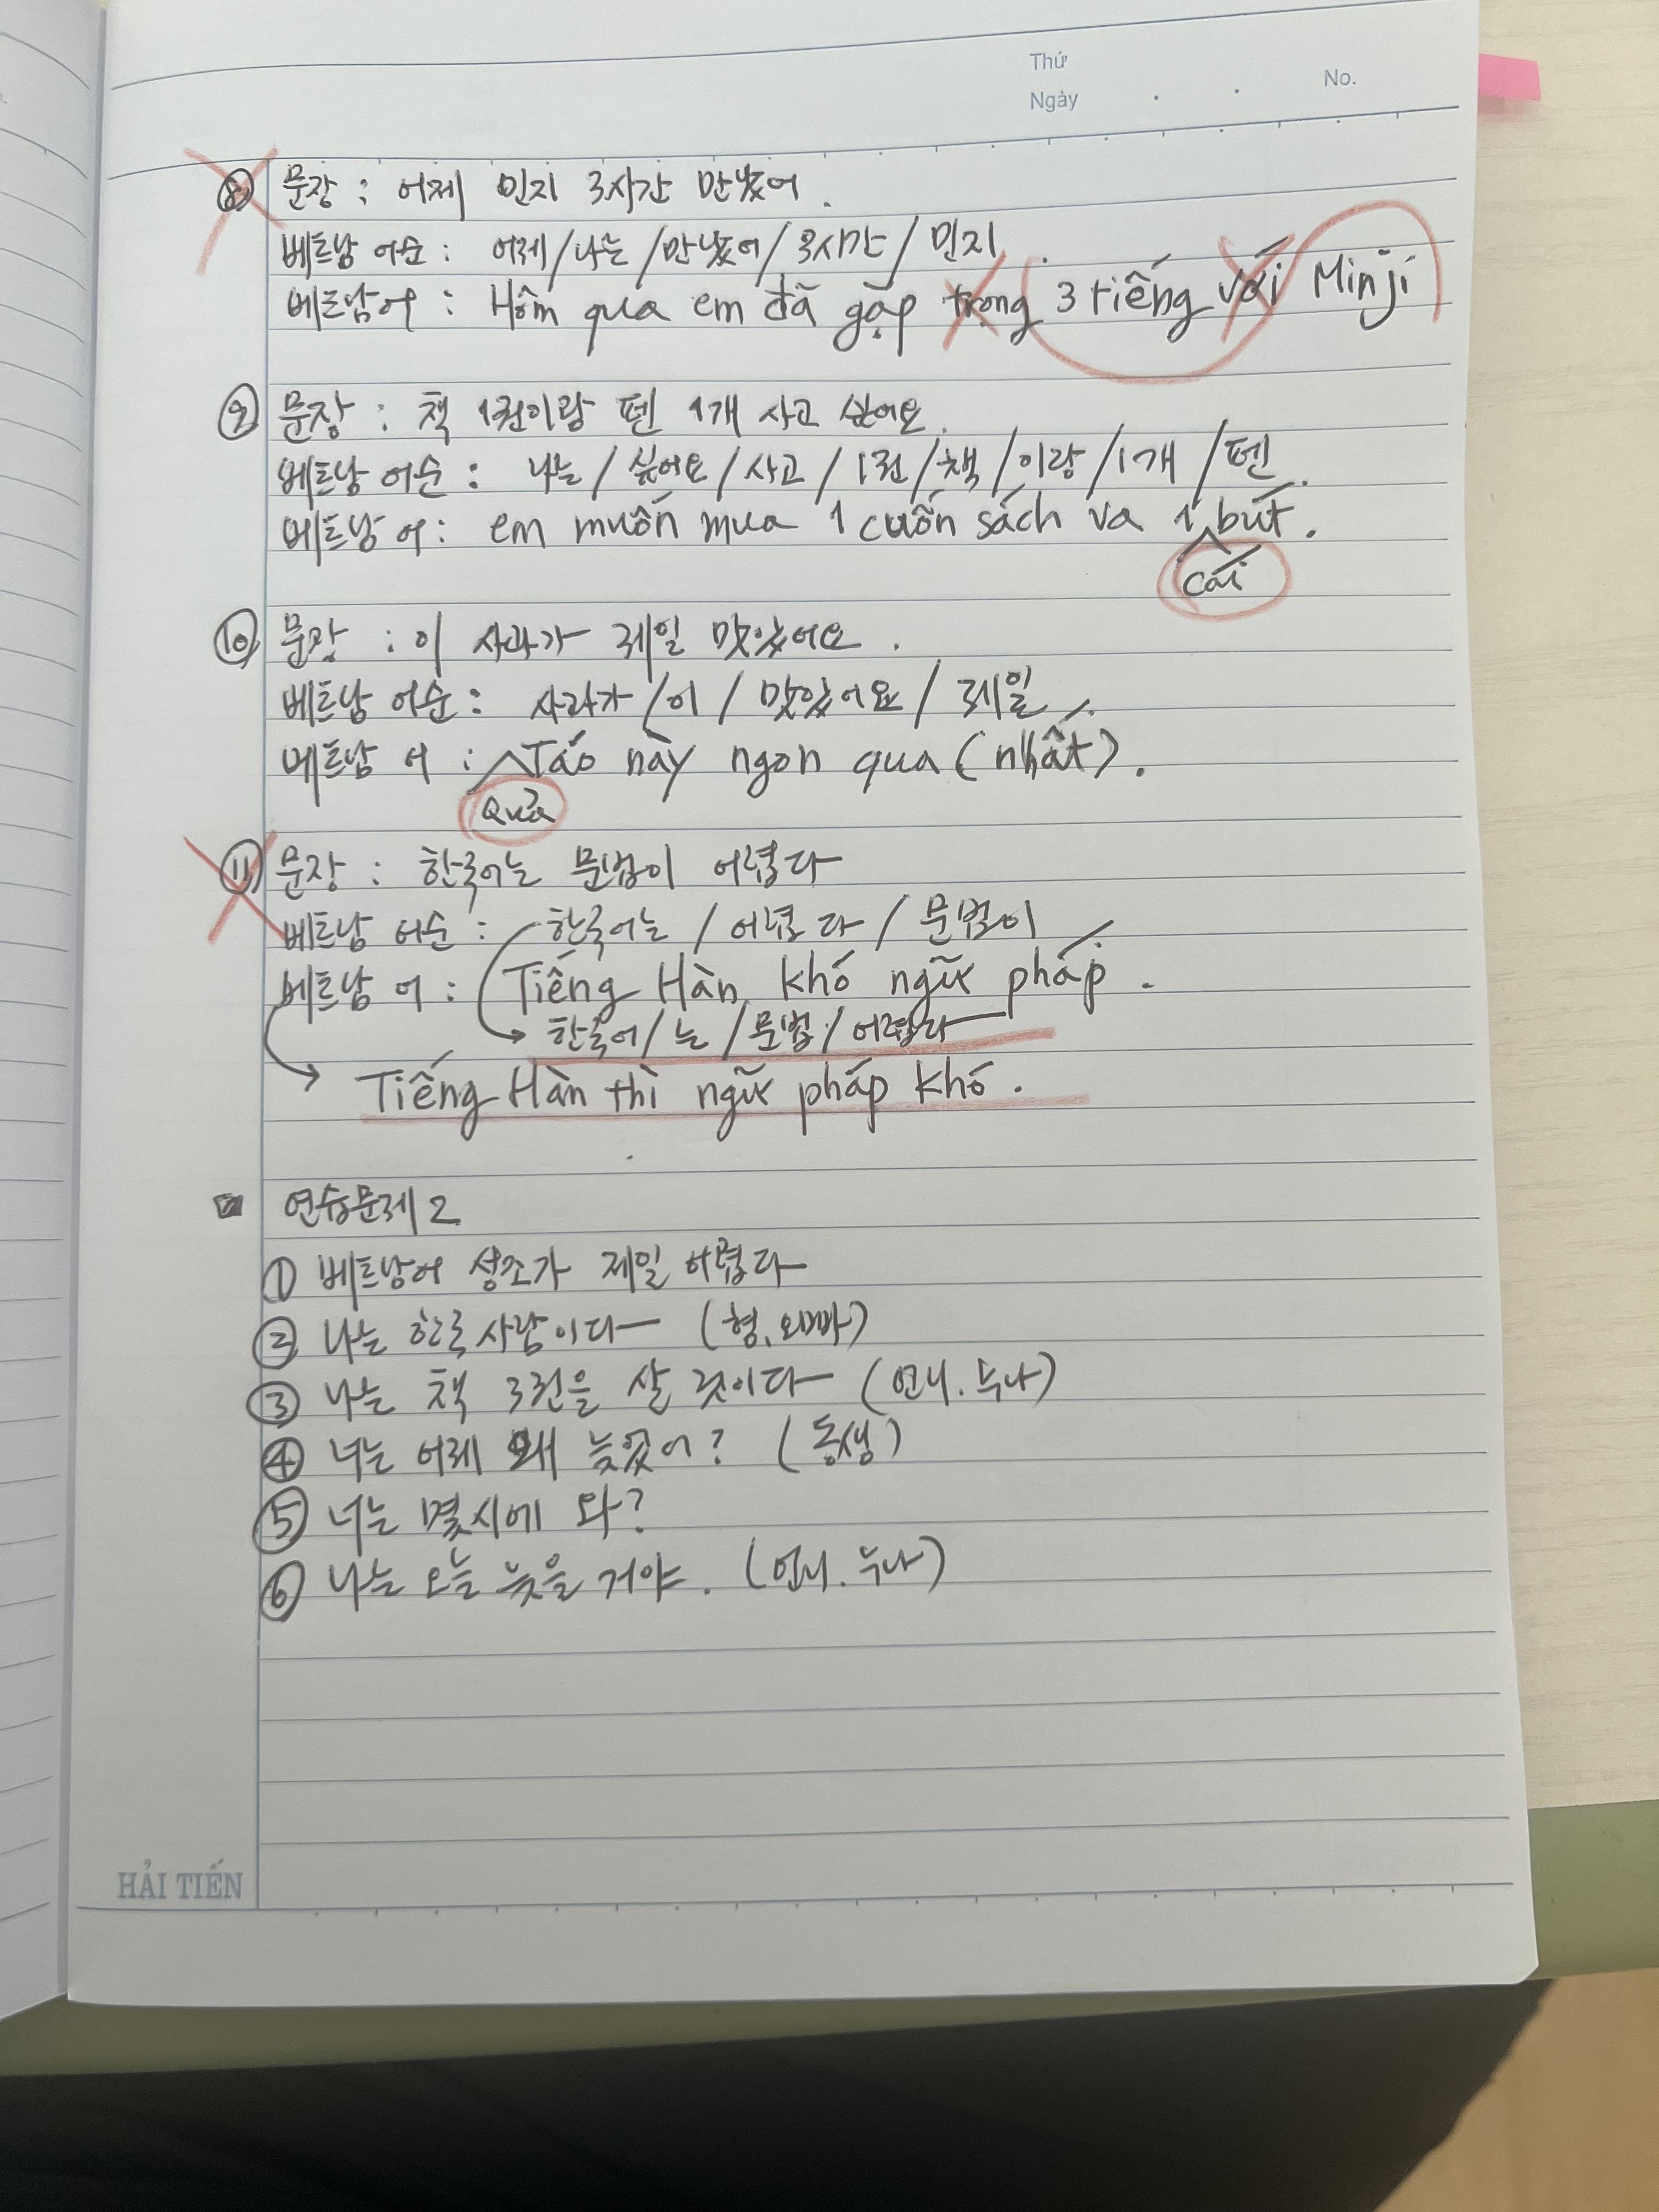 Thứ
Ngày . . No.
⑧ 문장 : 어제 민지 3시간 만났어.
베트남 어순 : 어제/나는/만났어/3시간/민지.
베트남어 : Hôm qua em đã gặp trọng 3 tiếng với Minji
⑨ 문장 : 책 1권이랑 펜 1개 사고 싶어요.
베트남 어순 : 나는/싶어요/사고/1권/책/이랑/1개/펜.
베트남어 : em muốn mua 1 cuốn sách va 1 bút.
cái
⑩ 문장 : 이 사과가 제일 맛있어요.
베트남 어순 : 사과가/이/맛있어요/제일.
베트남어 : Táo này ngon qua (nhất).
Quả
⑪ 문장 : 한국어는 문법이 어렵다
베트남 어순 : 한국어는/어렵다/문법이
베트남어 : Tiếng Hàn khó ngữ pháp.
한국어/는/문법/어렵다
Tiếng Hàn thì ngữ pháp khó.
연습문제 2
① 베트남어 성조가 제일 어렵다
② 나는 한국 사람이다 (형, 오빠)
③ 나는 책 3권을 살 것이다 (언니. 누나)
④ 너는 어제 왜 늦었어? (동생)
⑤ 너는 몇시에 와?
⑥ 나는 오늘 늦을 거야. (언니. 누나)
HẢI TIẾN